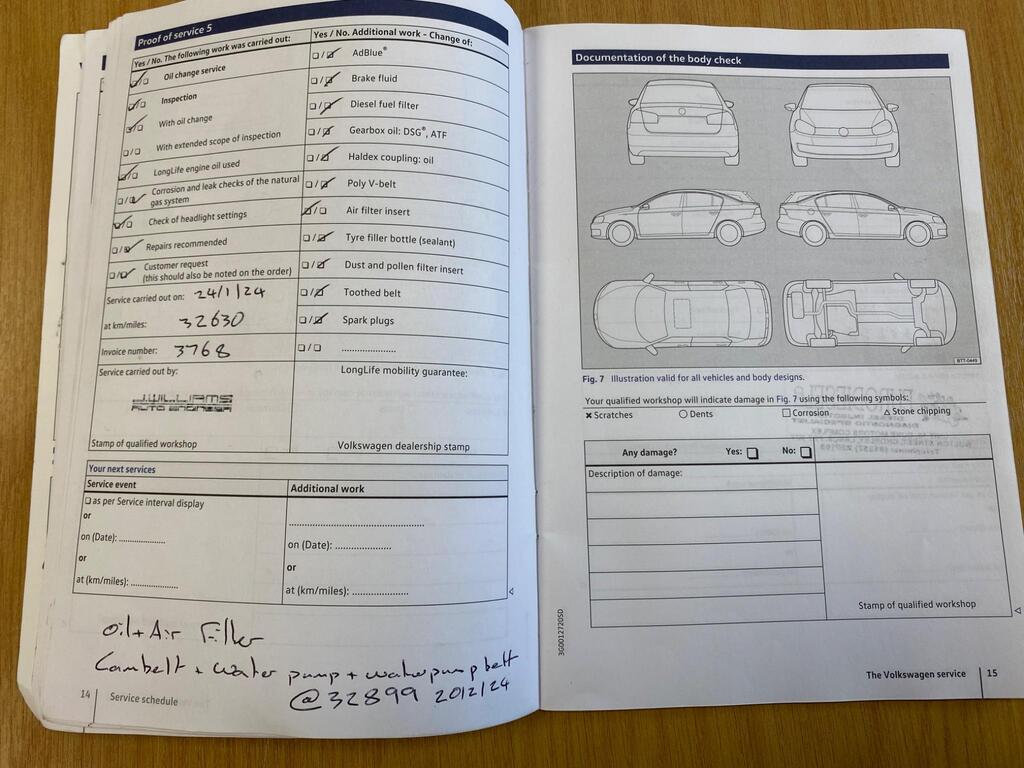 Proof of service 5
Yes / No. The following work was carried out:
Oil change service
Inspection
With oil change
With extended scope of inspection
LongLife engine oil used
Corrosion and leak checks of the natural
gas system
Check of headlight settings
Repairs recommended
Customer request
(this should also be noted on the order)
Service carried out on: 24/1/24
at km/miles: 32630
Invoice number: 3768
Service carried out by:
J.WILLIAMS
AUTO ENGINEER
Stamp of qualified workshop
Yes / No. Additional work - Change of:
AdBlue®
Brake fluid
Diesel fuel filter
Gearbox oil: DSG®, ATF
Haldex coupling: oil
Poly V-belt
Air filter insert
Tyre filler bottle (sealant)
Dust and pollen filter insert
Toothed belt
Spark plugs
.....................
LongLife mobility guarantee:
Volkswagen dealership stamp
Your next services
Service event
as per Service interval display
or
on (Date): .................
or
at (km/miles): .................
Additional work
.................................................
on (Date): .....................
or
at (km/miles): .....................
Oil + Air Filter
Cambelt + water pump + waterpump belt
@ 32899 20/2/24
14 Service schedule
Documentation of the body check
BTT-0449
Fig. 7 Illustration valid for all vehicles and body designs.
Your qualified workshop will indicate damage in Fig. 7 using the following symbols:
Scratches Dents Corrosion Stone chipping
Any damage? Yes: No:
Description of damage:
Stamp of qualified workshop
3G0012720SD
The Volkswagen service 15